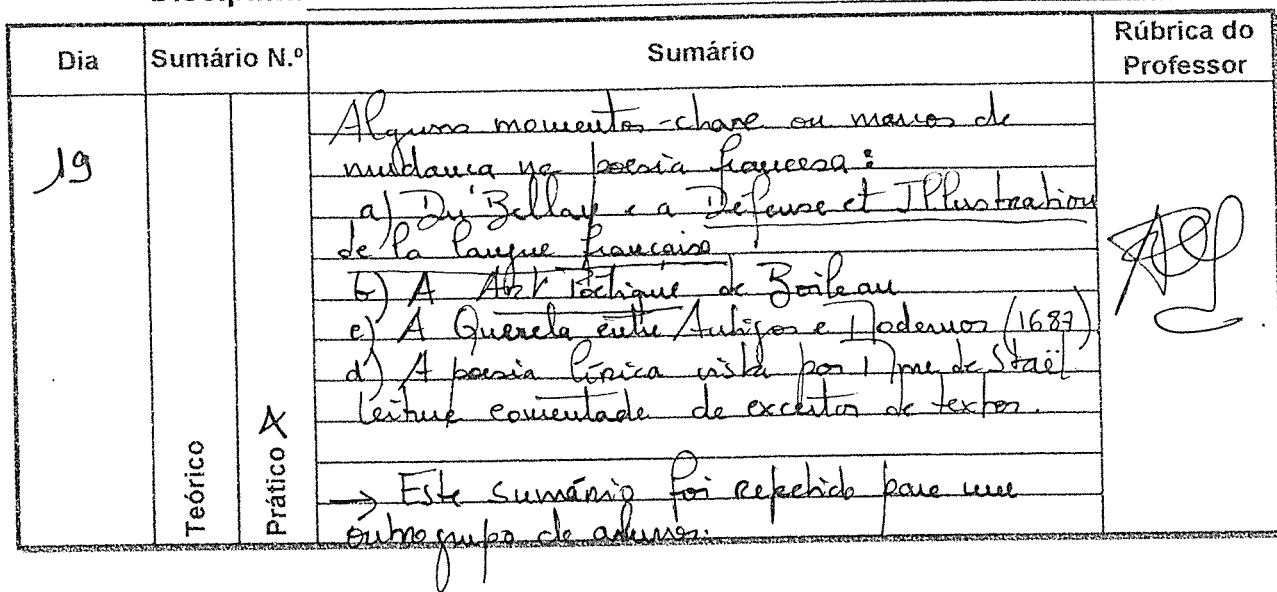 Dia
Sumário N.º
Sumário
Rúbrica do
Professor
19
Teórico
Prático X
Alguns momentos-chave ou marcos de
mudança na poesia francesa:
a) Du Bellay e a Défense et Illustration
de la langue française
b) A Art Poétique de Boileau
c) A Querela entre Antigos e Modernos (1687)
d) A poesia lírica vista por Mme de Staël
Leitura comentada de excertos de textos.
→ Este sumário foi repetido para um
outro grupo de alunos.